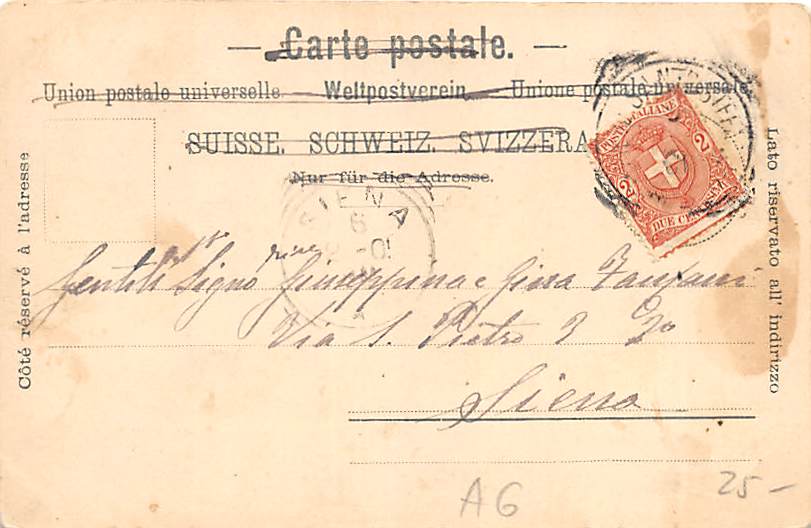 — Carte postale. —
Union postale universelle. Weltpostverein. Unione postale universale.
SUISSE. SCHWEIZ. SVIZZERA
Nur für die Adresse.
Côté réservé à l'adresse
Lato riservato all' indirizzo
POSTE ITALIANE
2 2
DUE CENTESIMI
SIENA
6
-01
Gentili Signo rine Giuseppina e
Via S. Pietro
Siena
A6
25 -